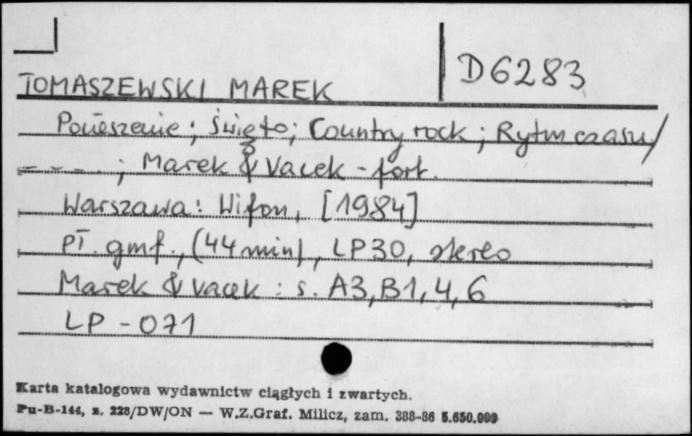 D6283
TOMASZEWSKI MAREK
Pocieszenie; Święto; Country rock; Rytm czasu/
----; Marek & Vacek - fort.
Warszawa: Wifon, [1984]
Pł. gmf., (44 min), LP30, stereo
Marek & Vacek : s. A3, B1, 4, 6
LP - 071
Karta katalogowa wydawnictw ciągłych i zwartych.
Pu-B-144, z. 228/DW/ON — W.Z.Graf. Milicz, zam. 388-86 5.650.000